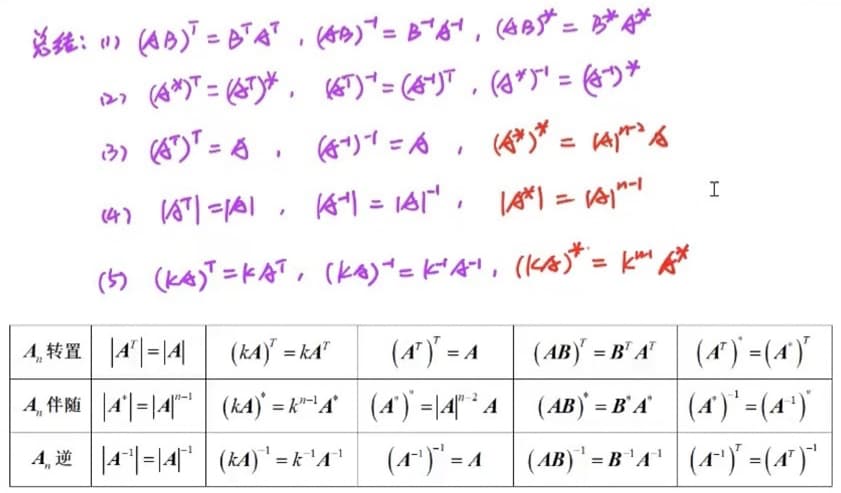 总结: (1) (AB)ᵀ = BᵀAᵀ , (AB)⁻¹ = B⁻¹A⁻¹ , (AB)* = B*A*
(2) (A*)ᵀ = (Aᵀ)* , (Aᵀ)⁻¹ = (A⁻¹)ᵀ , (A*)⁻¹ = (A⁻¹)*
(3) (Aᵀ)ᵀ = A , (A⁻¹)⁻¹ = A , (A*)* = |A|ⁿ⁻² A
(4) |Aᵀ| = |A| , |A⁻¹| = |A|⁻¹ , |A*| = |A|ⁿ⁻¹
(5) (kA)ᵀ = kAᵀ , (kA)⁻¹ = k⁻¹A⁻¹ , (kA)* = kⁿ⁻¹ A*
Aₙ转置 |Aᵀ| = |A| (kA)ᵀ = kAᵀ (Aᵀ)ᵀ = A (AB)ᵀ = BᵀAᵀ (Aᵀ)* = (A*)ᵀ
Aₙ伴随 |A*| = |A|ⁿ⁻¹ (kA)* = kⁿ⁻¹A* (A*)* = |A|ⁿ⁻² A (AB)* = B*A* (A*)⁻¹ = (A⁻¹)*
Aₙ逆 |A⁻¹| = |A|⁻¹ (kA)⁻¹ = k⁻¹A⁻¹ (A⁻¹)⁻¹ = A (AB)⁻¹ = B⁻¹A⁻¹ (A⁻¹)ᵀ = (Aᵀ)⁻¹